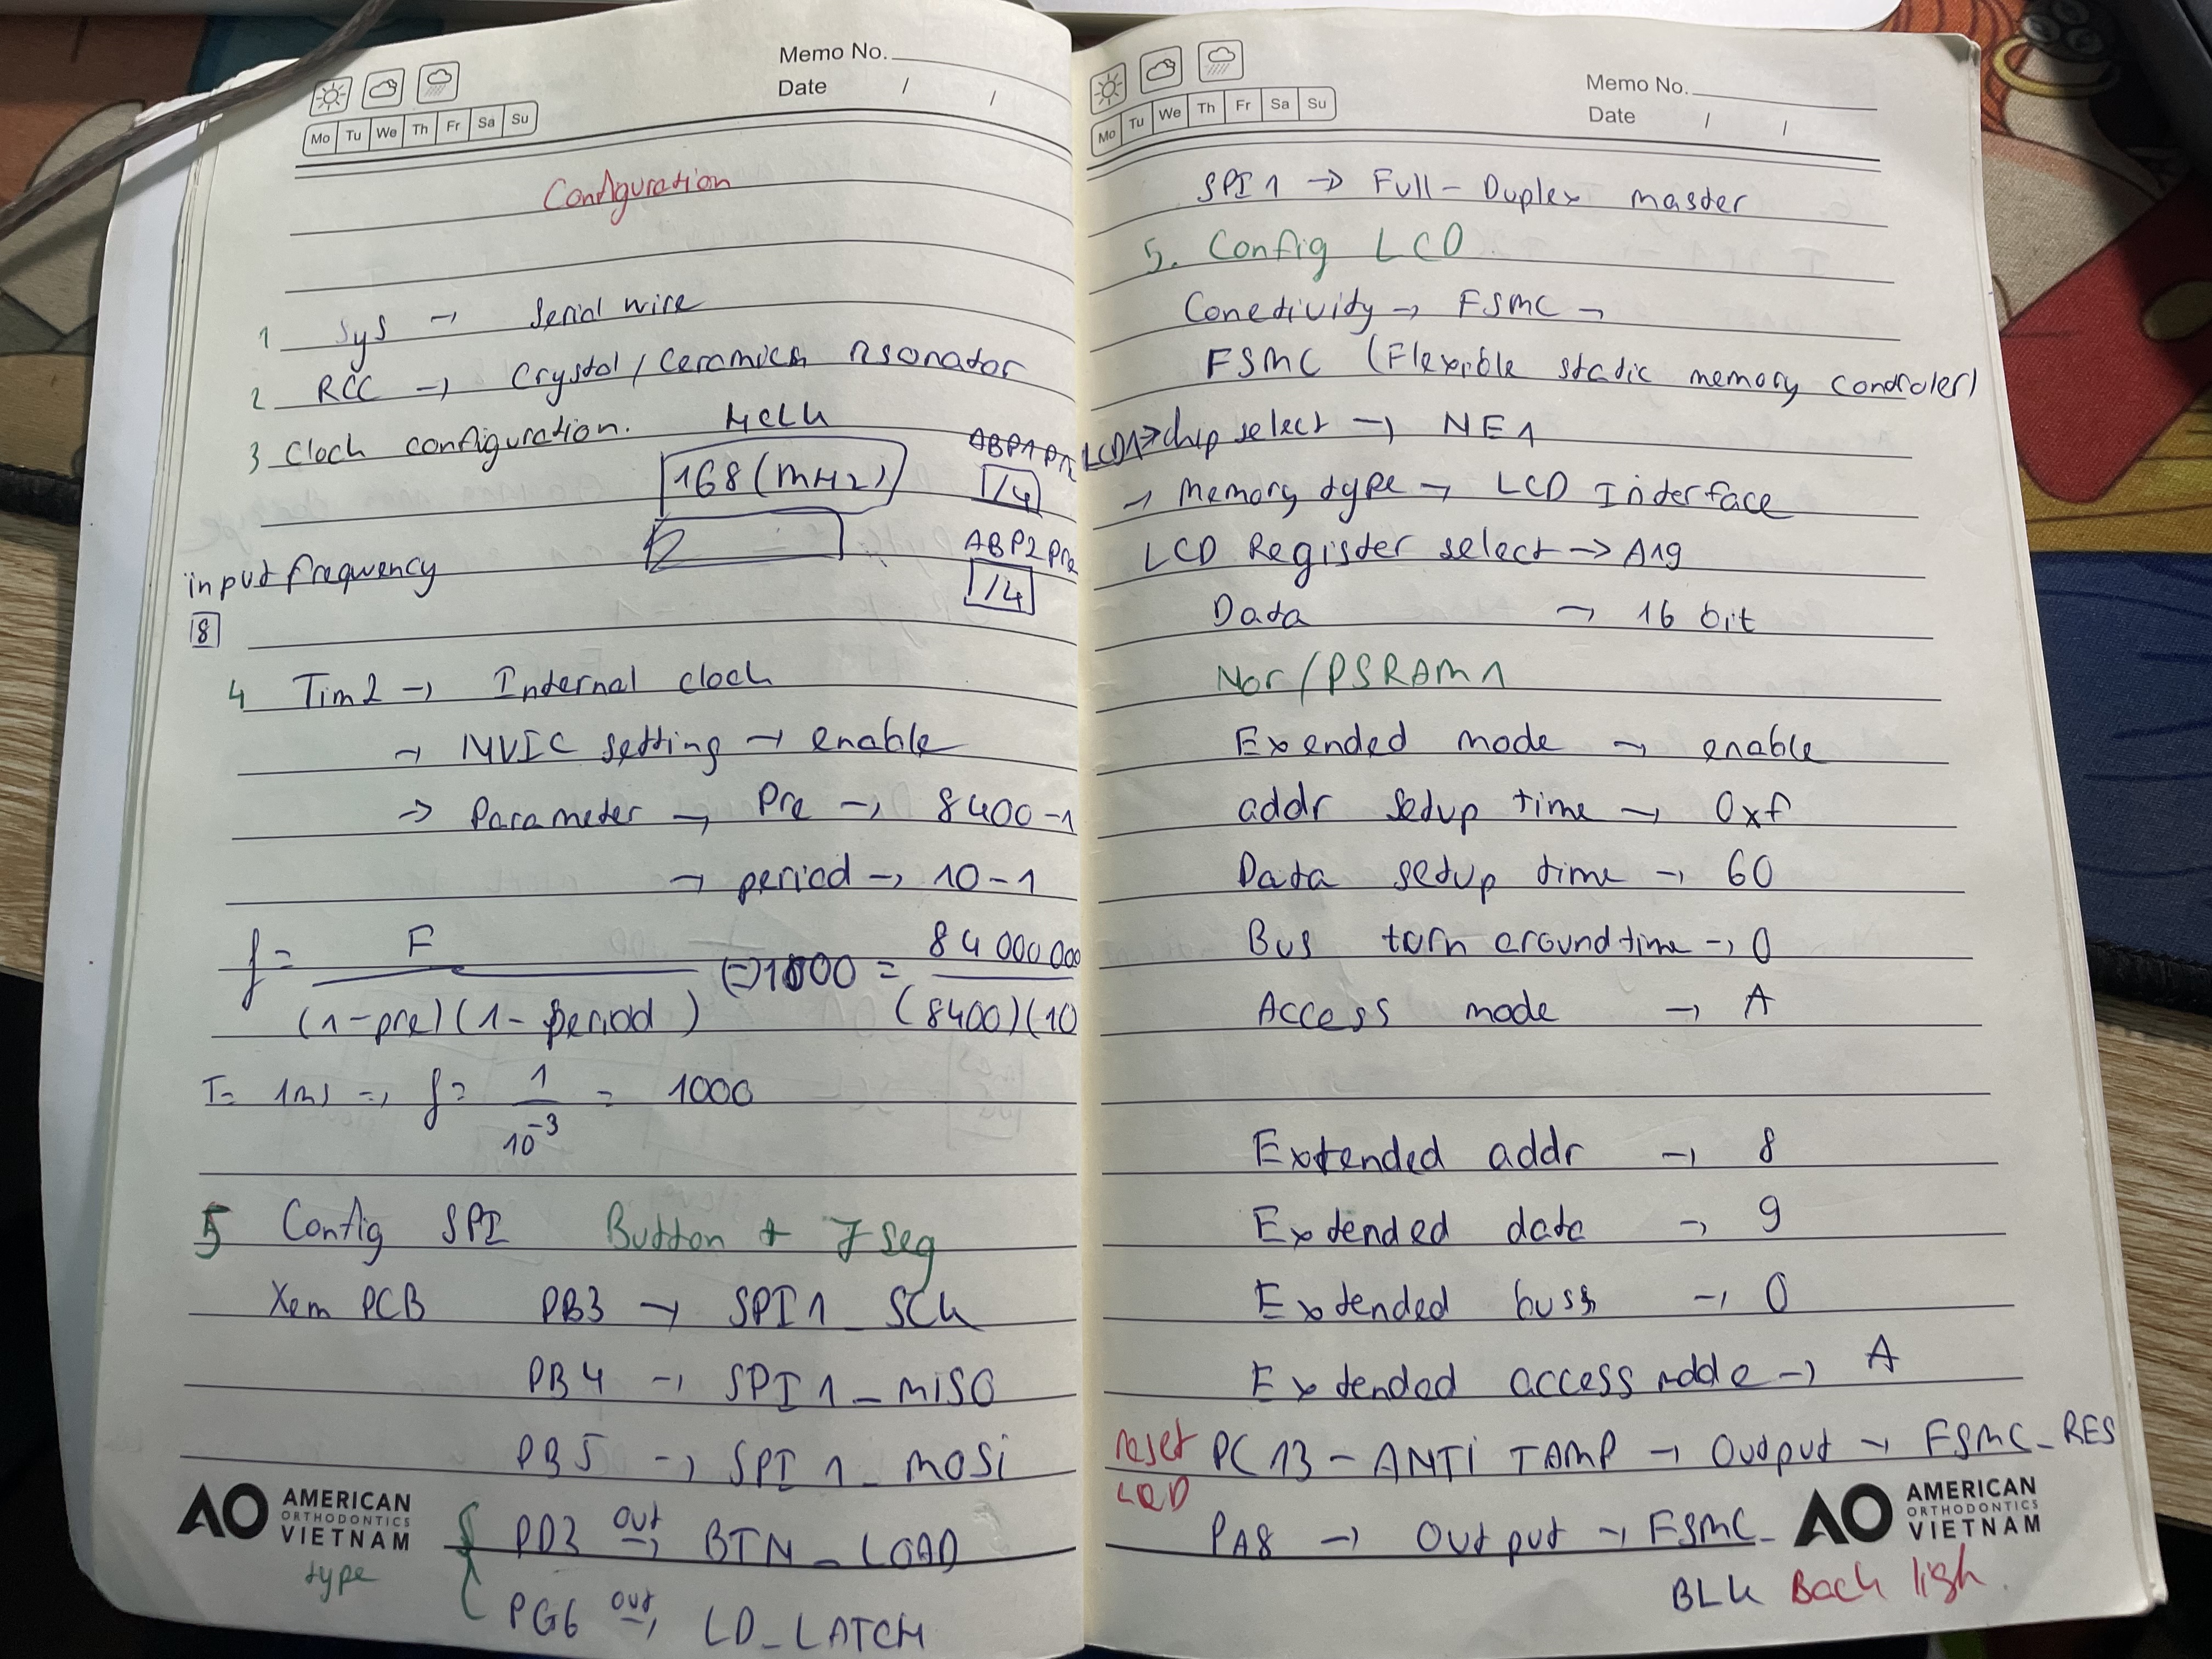 Memo No.
Date / /
Mo Tu We Th Fr Sa Su
Configuration
1 Sys → Serial wire
2 RCC → Crystal/Ceramics resonator
3 Clock configuration. HCLK
168 (MHz)
/4
input frequency
ABP2 Pre
/4
8
4 Tim2 → Internal clock
→ NVIC setting → enable
→ Parameter → Pre → 8400-1
→ period → 10-1
f = F / (1-pre)(1-period) (=) 1000 = 84 000 000 / (8400)(10
T= 1ms => f= 1 / 10^-3 = 1000
5 Config SPI Button + 7 seg
Xem PCB PB3 → SPI1_SCK
PB4 → SPI1_MISO
PB5 → SPI1_MOSI
PD3 out → BTN_LOAD
PG6 out → LD_LATCH
type
AO AMERICAN
ORTHODONTICS
VIETNAM
Memo No.
Date / /
Mo Tu We Th Fr Sa Su
SPI1 → Full-Duplex master
5. Config LCD
Conectivity → FSMC →
FSMC (Flexible static memory controler)
LCD1 → chip select → NE1
→ Memory type → LCD Interface
LCD Register select → A19
Data → 16 bit
Nor/PSRAM1
Exended mode → enable
addr setup time → 0xf
Data setup time → 60
Bus turn around time → 0
Access mode → A
Extended addr → 8
Extended data → 9
Extended buss → 0
Extended access mode → A
reset PC13-ANTI TAMP → Output → FSMC_RES
LCD
PA8 → Output → FSMC_
BLK Back ligh.
AO AMERICAN
ORTHODONTICS
VIETNAM